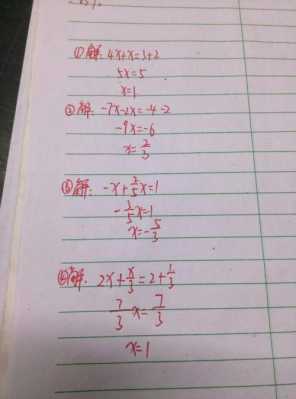 ①解: 4x+x=3+2
5x=5
x=1
②解: -7x-2x=-4-2
-9x=-6
x=2/3
③解: -x+2/5x=1
-3/5x=1
x=-5/3
④解: 2x+x/3=2+1/3
7/3x=7/3
x=1